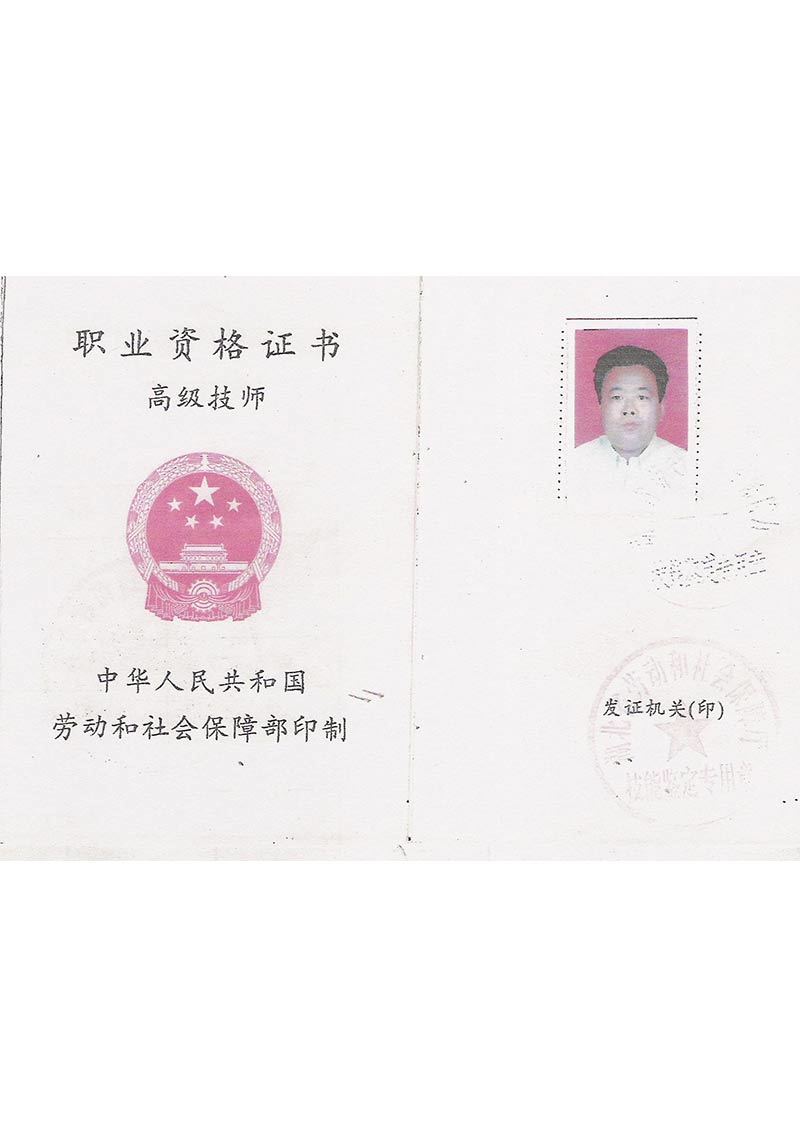 职业资格证书
高级技师
中华人民共和国
劳动和社会保障部印制
发证机关(印)
劳动和社会保障厅
技能鉴定专用章